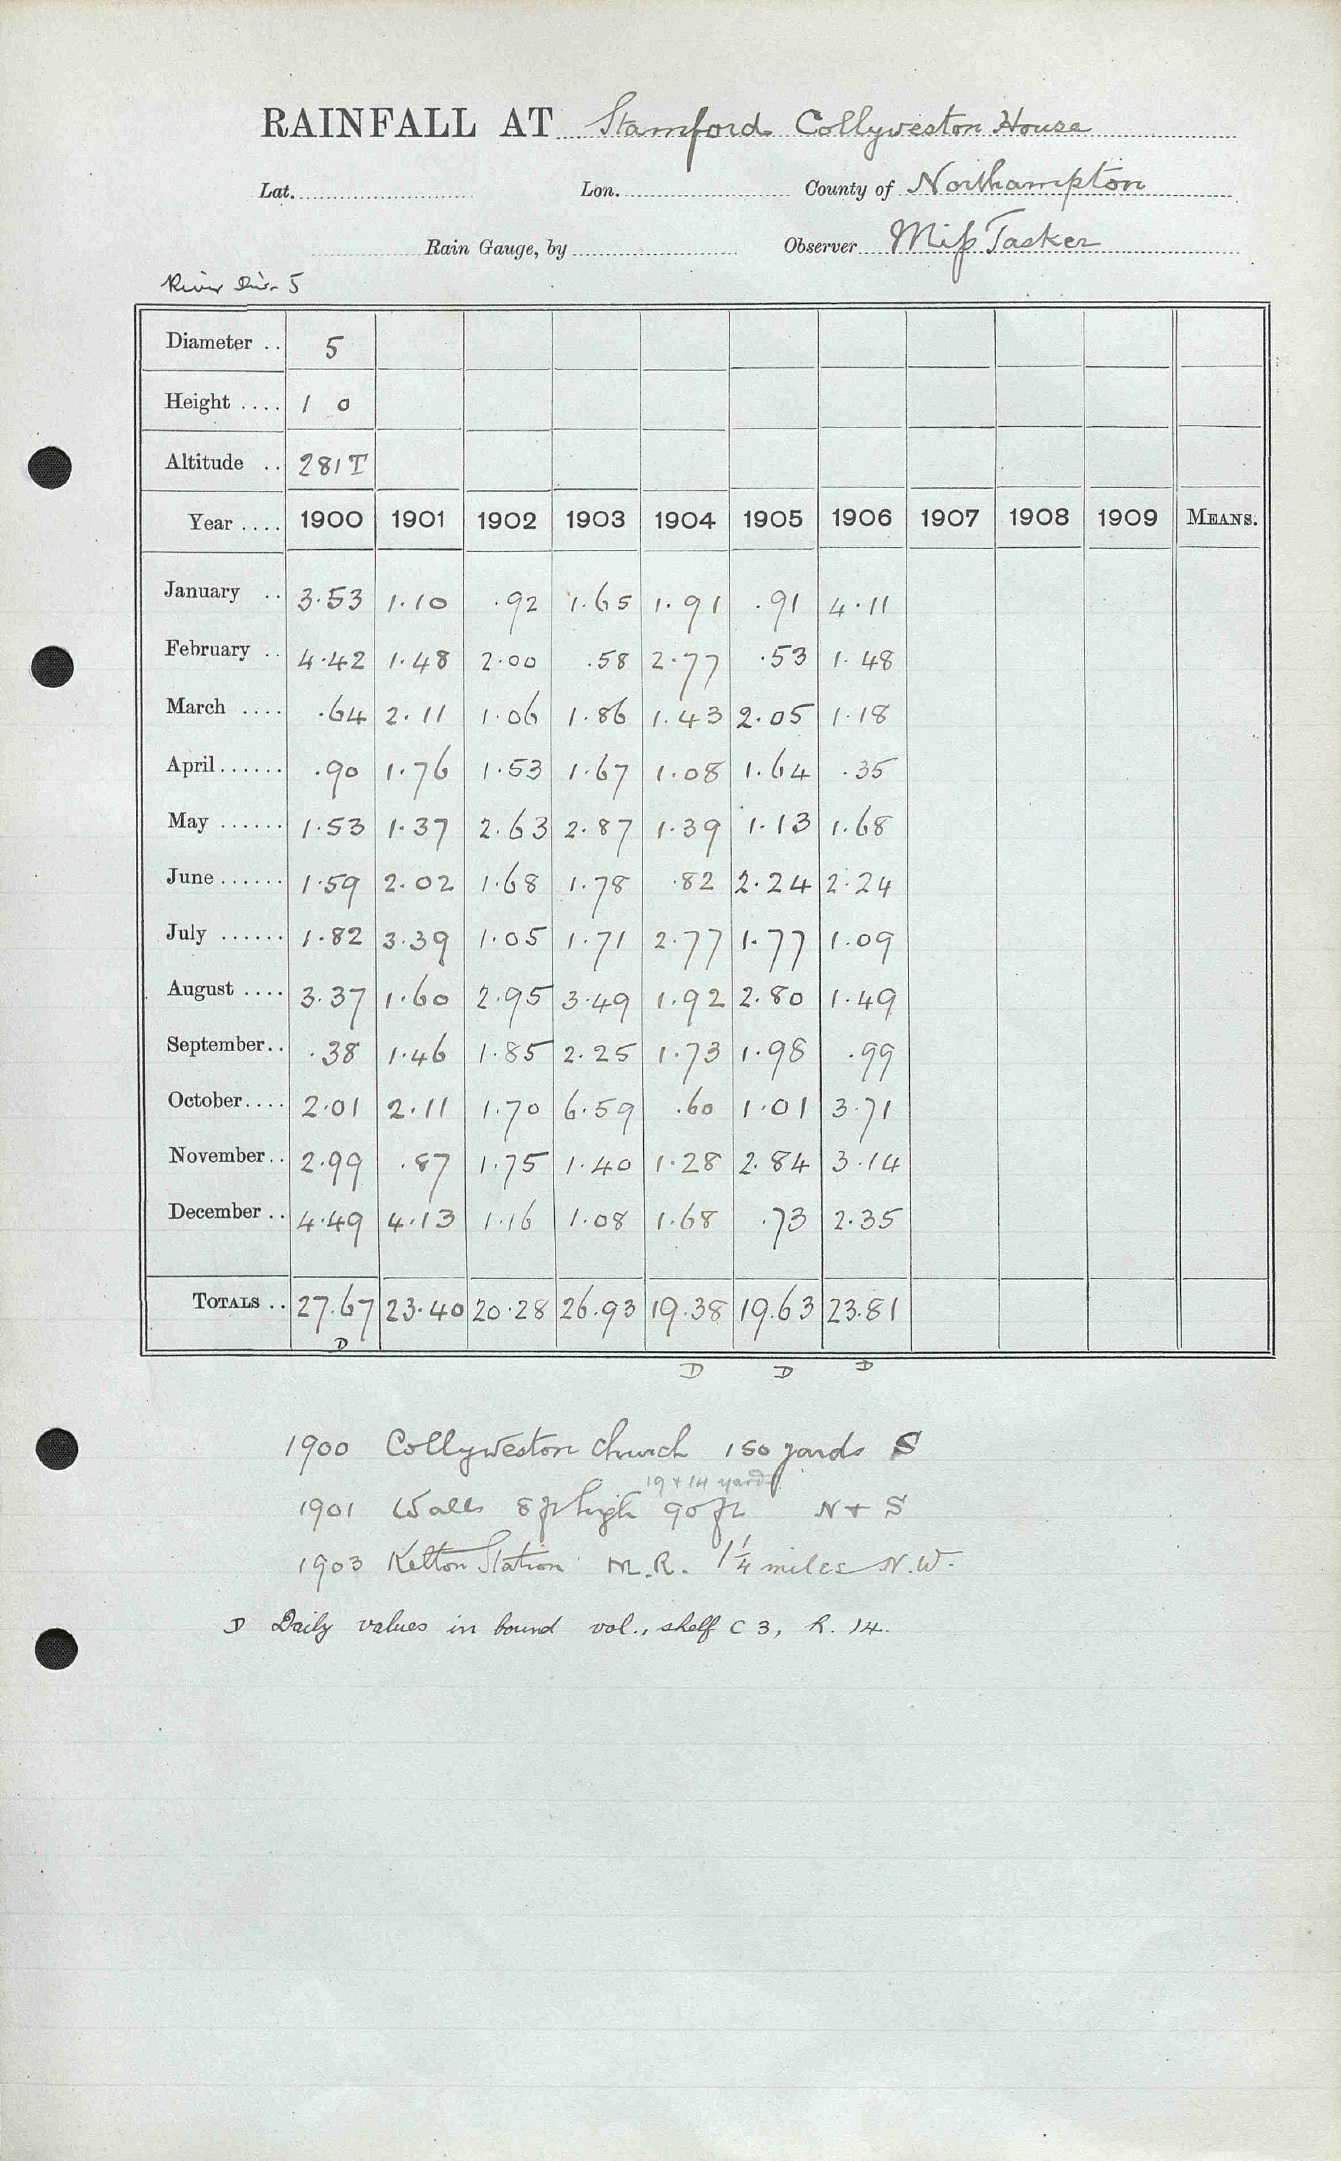 RAINFALL AT Stamford. Collyweston House
Lat. Lon. County of Northampton
Rain Gauge, by Observer Miss Tasker
River Div. 5
Diameter .. 5
Height .... 1 0
Altitude .. 281T
Year .... 1900 1901 1902 1903 1904 1905 1906 1907 1908 1909 MEANS.
January .. 3.53 1.10 .92 1.65 1.91 .91 4.11
February .. 4.42 1.48 2.00 .58 2.77 .53 1.48
March .... .64 2.11 1.06 1.86 1.43 2.05 1.18
April...... .90 1.76 1.53 1.67 1.08 1.64 .35
May ...... 1.53 1.37 2.63 2.87 1.39 1.13 1.68
June...... 1.59 2.02 1.68 1.78 .82 2.24 2.24
July ...... 1.82 3.39 1.05 1.71 2.77 1.77 1.09
August .... 3.37 1.60 2.95 3.49 1.92 2.80 1.49
September.. .38 1.46 1.85 2.25 1.73 1.98 .99
October.... 2.01 2.11 1.70 6.59 .60 1.01 3.71
November.. 2.99 .87 1.75 1.40 1.28 2.84 3.14
December .. 4.49 4.13 1.16 1.08 1.68 .73 2.35
TOTALS .. 27.67 23.40 20.28 26.93 19.38 19.63 23.81
D
D D D
1900 Collyweston Church 150 yards S
19 + 14 yards
1901 Walls 8 ft high 90 ft N + S
1903 Ketton Station M.R. 1 1/4 miles N.W.
D Daily values in bound vol., shelf C 3, R. 14.